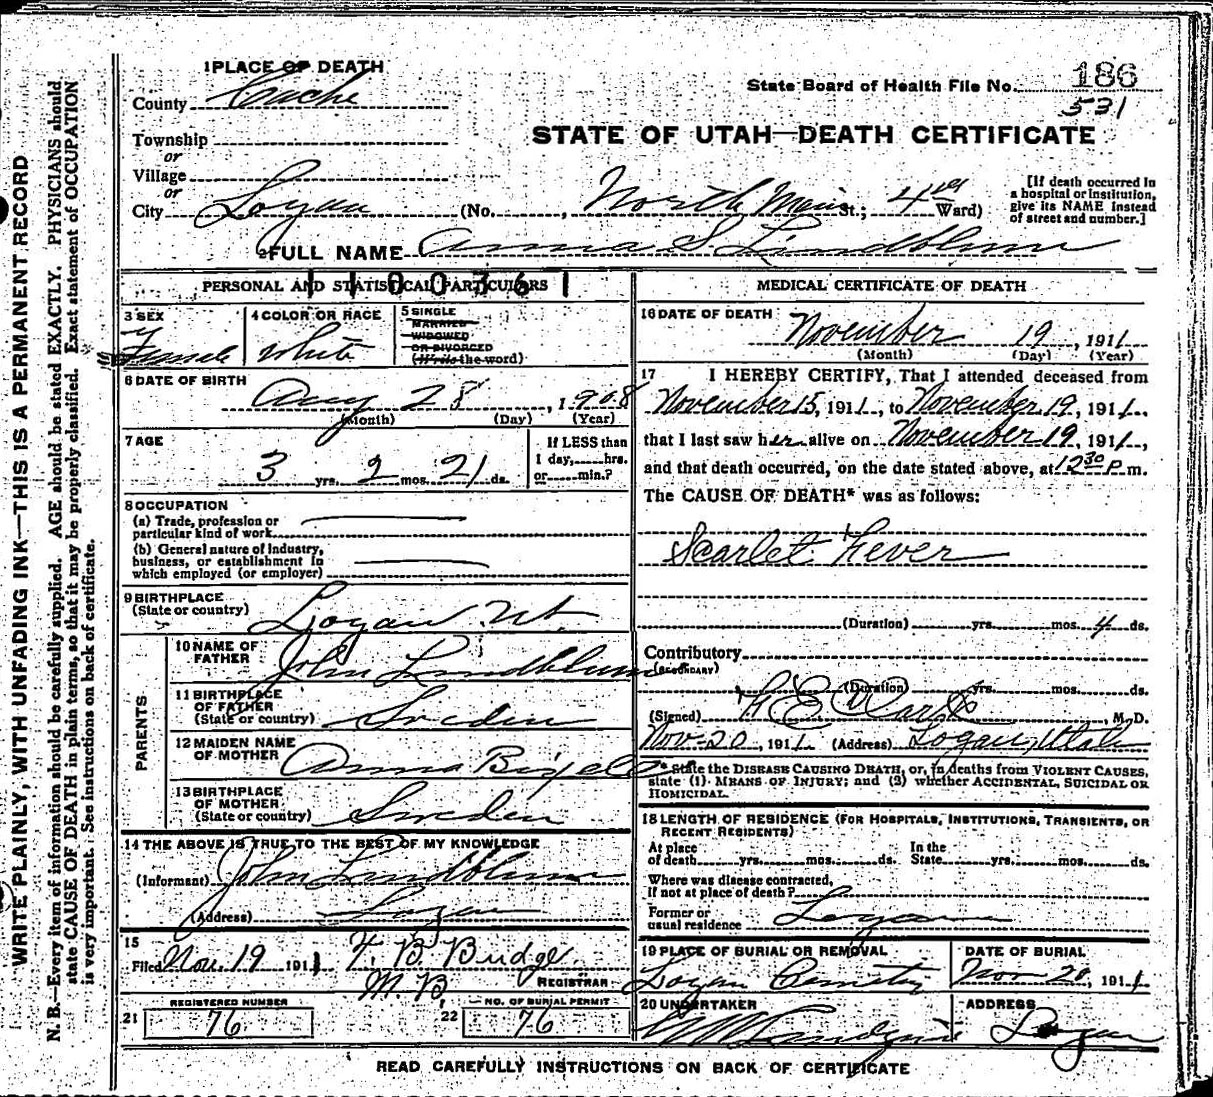 1 PLACE OF DEATH
County Cache
State Board of Health File No. 186
531
Township
or
Village
or
STATE OF UTAH—DEATH CERTIFICATE
City Logan (No. , North Main St.; 4th Ward)
[If death occurred in a hospital or institution, give its NAME instead of street and number.]
2 FULL NAME Anna S. Lindblum
PERSONAL AND STATISTICAL PARTICULARS
1100361
3 SEX
F
Female
4 COLOR OR RACE
White
5 SINGLE
MARRIED
WIDOWED
OR DIVORCED
(Write the word)
6 DATE OF BIRTH
Aug 28, 1908
(Month) (Day) (Year)
7 AGE
3 yrs. 2 mos. 21 ds.
If LESS than
1 day, hrs.
or min.?
8 OCCUPATION
(a) Trade, profession or
particular kind of work
(b) General nature of industry,
business, or establishment in
which employed (or employer)
9 BIRTHPLACE
(State or country) Logan Ut.
PARENTS
10 NAME OF
FATHER John Lindblum
11 BIRTHPLACE
OF FATHER
(State or country) Sweden
12 MAIDEN NAME
OF MOTHER Anna
13 BIRTHPLACE
OF MOTHER
(State or country) Sweden
14 THE ABOVE IS TRUE TO THE BEST OF MY KNOWLEDGE
(Informant) John Lindblum
(Address) Logan
15
Filed Nov. 19 1911 F. B. Budge
REGISTRAR
21 REGISTERED NUMBER
76
22 NO. OF BURIAL PERMIT
76
MEDICAL CERTIFICATE OF DEATH
16 DATE OF DEATH
November 19, 1911
(Month) (Day) (Year)
17 I HEREBY CERTIFY, That I attended deceased from
November 15, 1911, to November 19, 1911,
that I last saw her alive on November 19, 1911,
and that death occurred, on the date stated above, at 12 30 P m.
The CAUSE OF DEATH* was as follows:
Scarlet Fever
(Duration) yrs. mos. 4 ds.
Contributory
(SECONDARY)
(Duration) yrs. mos. ds.
(Signed) , M. D.
Nov 20, 1911. (Address) Logan, Utah
* State the DISEASE CAUSING DEATH, or, in deaths from VIOLENT CAUSES,
state (1) MEANS OF INJURY; and (2) whether ACCIDENTAL, SUICIDAL OR
HOMICIDAL.
18 LENGTH OF RESIDENCE (FOR HOSPITALS, INSTITUTIONS, TRANSIENTS, OR
RECENT RESIDENTS)
At place
of death yrs. mos. ds.
In the
State yrs. mos. ds.
Where was disease contracted,
if not at place of death?
Former or
usual residence Logan
19 PLACE OF BURIAL OR REMOVAL
Logan Cemetery
DATE OF BURIAL
Nov 20, 1911
20 UNDERTAKER
ADDRESS
Logan
READ CAREFULLY INSTRUCTIONS ON BACK OF CERTIFICATE
WRITE PLAINLY, WITH UNFADING INK—THIS IS A PERMANENT RECORD
N. B.—Every item of information should be carefully supplied. AGE should be stated EXACTLY. PHYSICIANS should
state CAUSE OF DEATH in plain terms, so that it may be properly classified. Exact statement of OCCUPATION
is very important. See instructions on back of certificate.